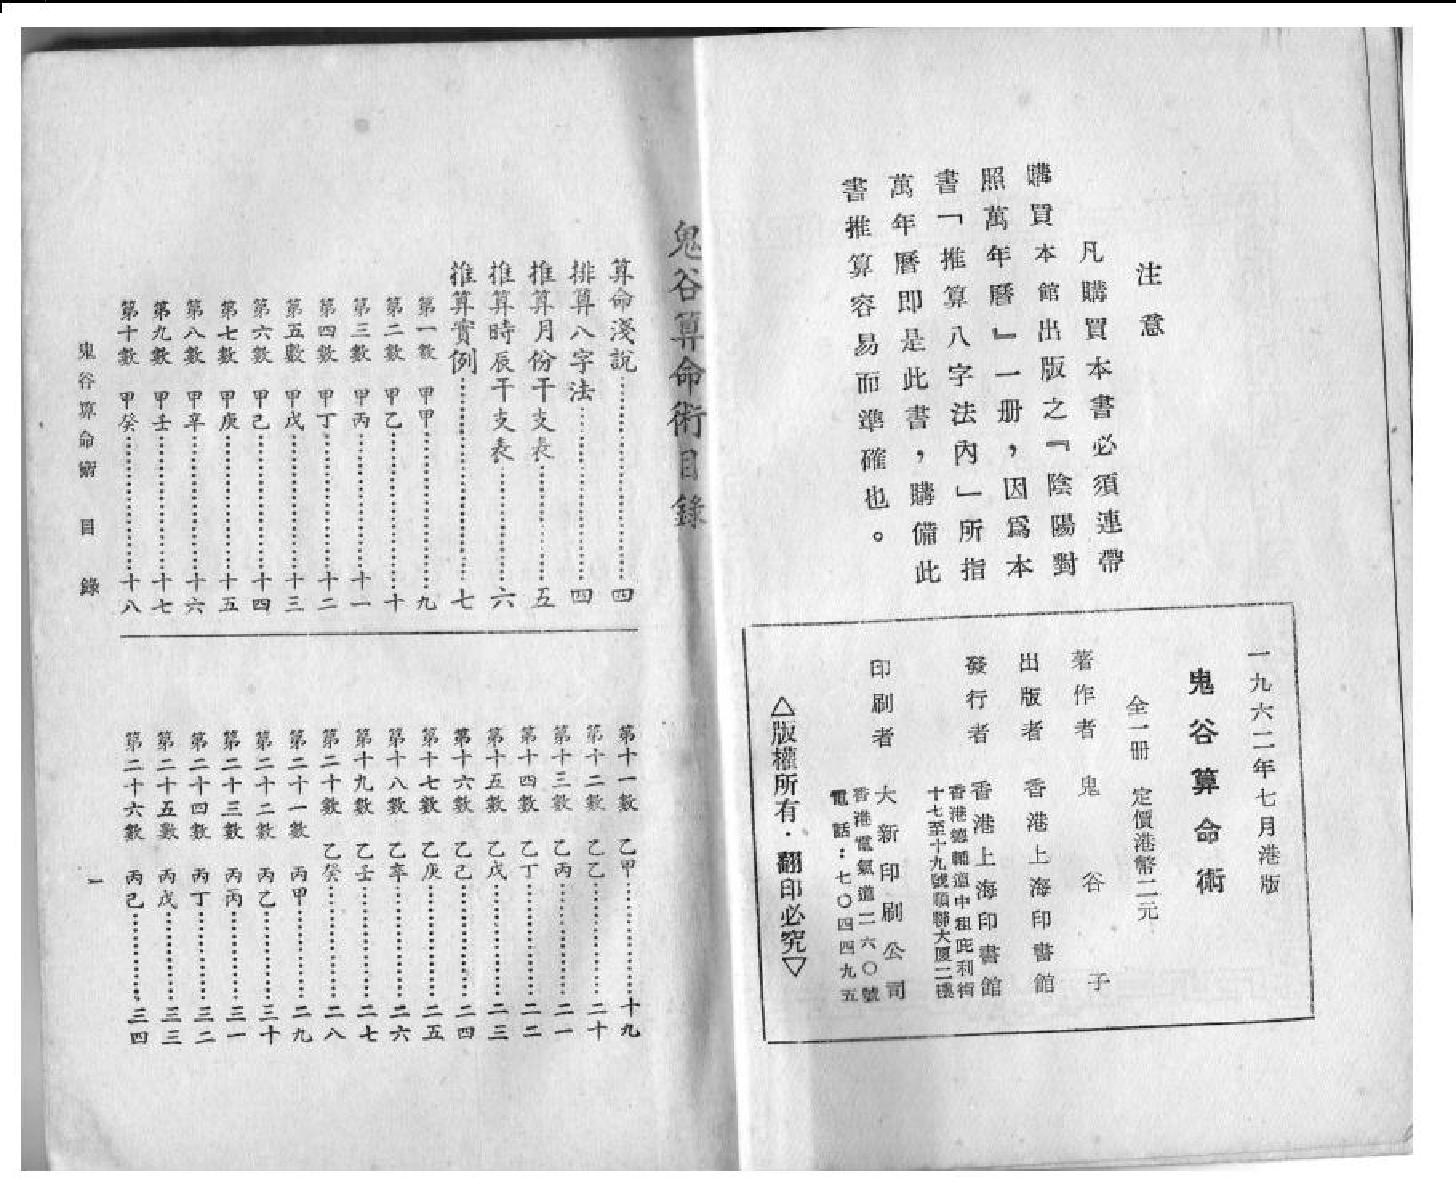 注意
凡購買本書必須連帶
購買本館出版之『陰陽對
照萬年曆』一册，因爲本
書「推算八字法內」所指
萬年曆即是此書，購備此
書推算容易而準確也。
一九六二年七月港版
鬼谷算命術
全一册 定價港幣二元
著作者 鬼谷子
出版者 香港上海印書館
發行者 香港上海印書館
香港德輔道中租庇利街
十七至十九號順聯大厦二樓
印刷者 大新印刷公司
香港電氣道一六〇號
電話：七〇四四九五
△版權所有．翻印必究▽
鬼谷算命術目錄
算命淺說……四
排算八字法……四
推算月份干支表……五
推算時辰干支表……六
推算實例……七
第一數 甲甲……九
第二數 甲乙……十
第三數 甲丙……十一
第四數 甲丁……十二
第五數 甲戊……十三
第六數 甲己……十四
第七數 甲庚……十五
第八數 甲辛……十六
第九數 甲壬……十七
第十數 甲癸……十八
第十一數 乙甲……十九
第十二數 乙乙……二十
第十三數 乙丙……二一
第十四數 乙丁……二二
第十五數 乙戊……二三
第十六數 乙己……二四
第十七數 乙庚……二五
第十八數 乙辛……二六
第十九數 乙壬……二七
第二十數 乙癸……二八
第二十一數 丙甲……二九
第二十二數 丙乙……三十
第二十三數 丙丙……三一
第二十四數 丙丁……三二
第二十五數 丙戊……三三
第二十六數 丙己……三四
鬼谷算命術 目錄 一